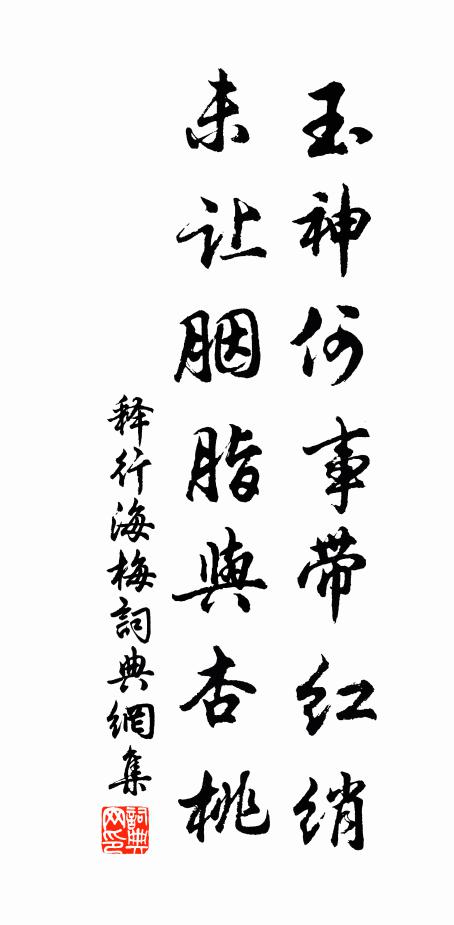 玉神何事带红绡
未让胭脂與杏桃
释行海梅詞典網集
詞典网印